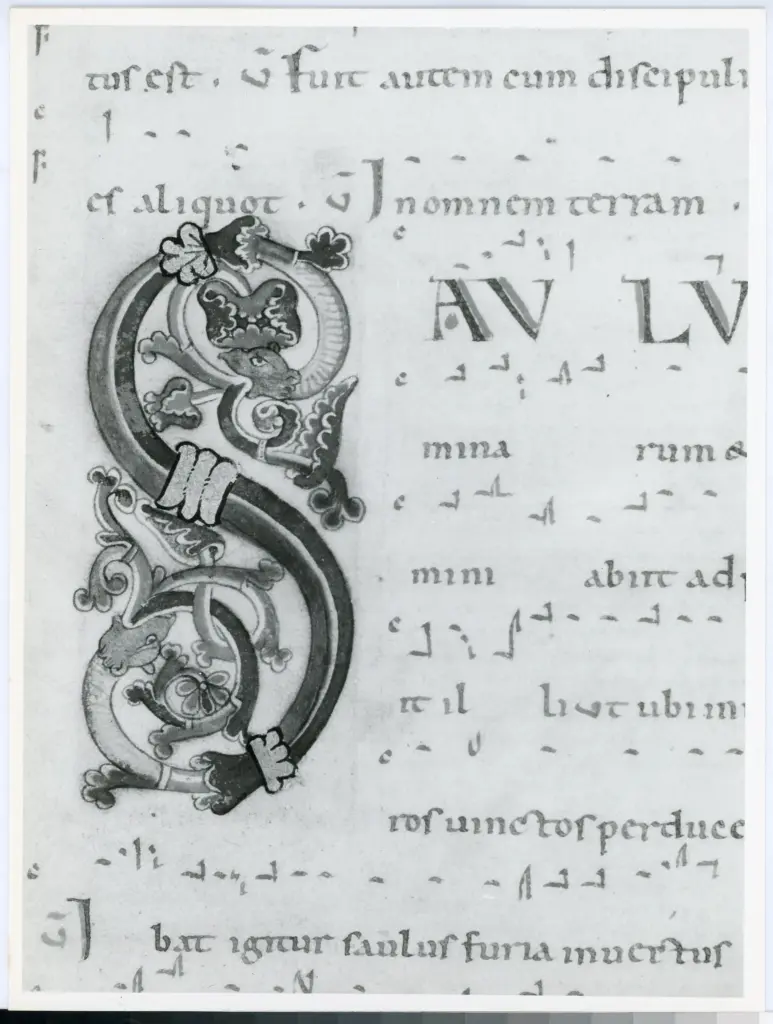 tus est . V Fuit autem cum discipuli
es aliquot . V In omnem terram .
SAV LV
mina rum &
mini abiit ad
it il lic ut ubi in
ros uinctos perduce
Ibat igitur saulus furia inuectus